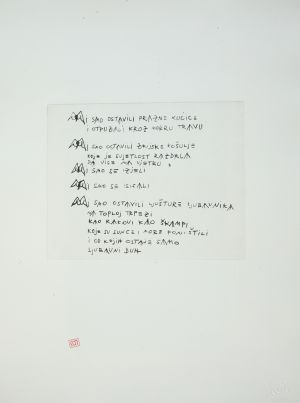 SMO OSTAVILI PRAZNE KUĆICE
I OTPUZALI KROZ MOKRU TRAVU
SMO OSTAVILI ZMIJSKE KOŠULJE
KOJE JE SVJETLOST RAZDRLA
DA VISE NA VJETRU
SMO SE IZJELI
SMO SE
SMO OSTAVILI LJUŠTURE LJUBAVNIKA
NA TOPLOJ TRPEZI
KAO RAKOVI KAO ŠKAMPI
KOJE SU SUNCE I MORE PONIŠTILI
I OD KOJIH OSTANE SAMO
LJUBAVNI DUH